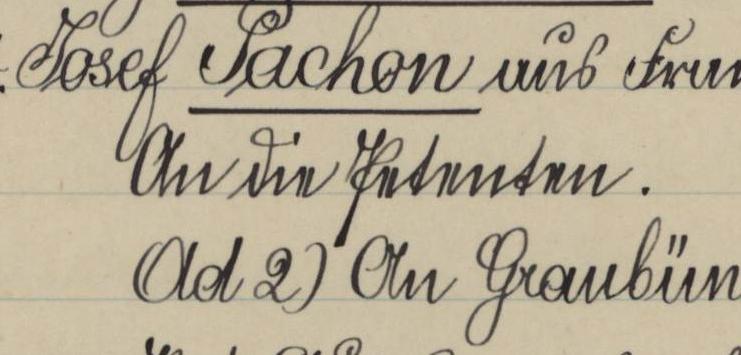 Josef Pachon aus Fran
An die Petenten.
Ad 2) An Graubün